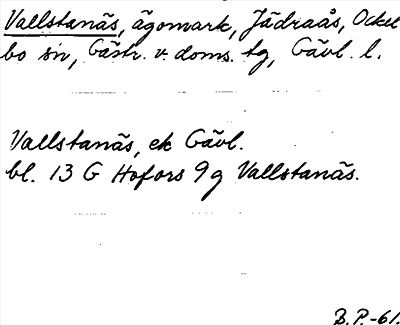 Vallstanäs, ägomark, Jädraås, Ockel
bo sn, Gästr. v. doms. tg, Gävl. l.
Vallstanäs, ek Gävl.
bl. 13 G Hofors 9g Vallstanäs.
B.P.-61.